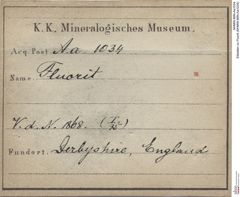 K. K. Mineralogisches Museum.
Acq. Post Aa 1034
Name: Fluorit
V. d. N. 1868.
Fundort: Derbyshire, England